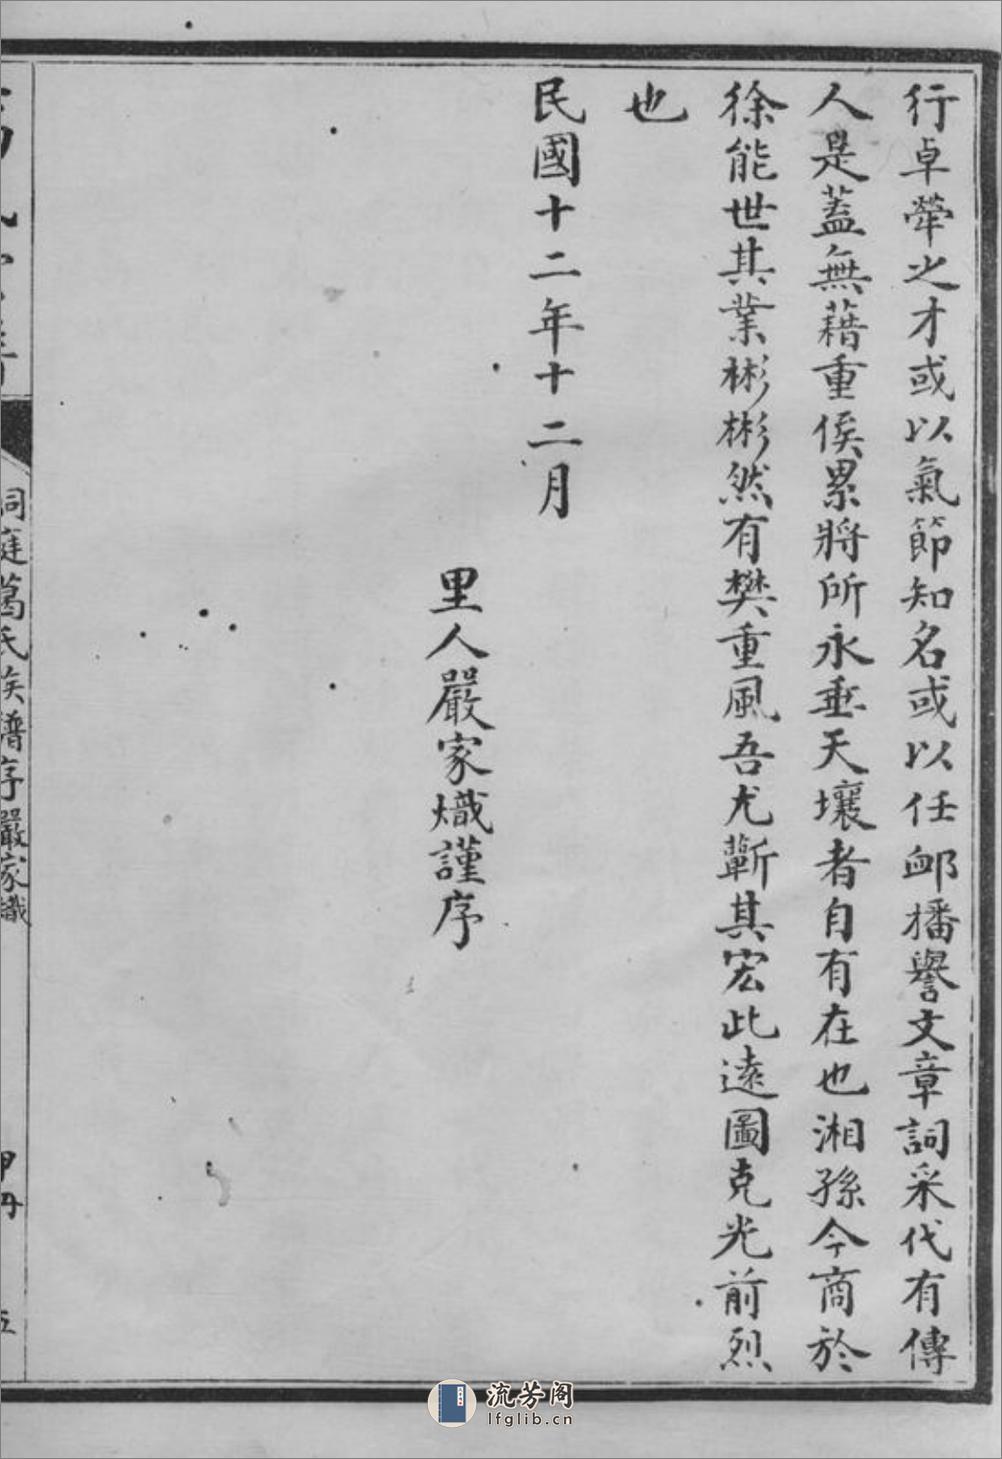 行卓犖之才或以氣節知名或以任卹播譽文章詞采代有傳
人是蓋無藉重侯累將所永垂天壤者自有在也湘孫今商於
徐能世其業彬彬然有樊重風吾尤蘄其宏此遠圖克光前烈
也
民國十二年十二月
里人嚴家熾謹序
洞庭葛氏族譜序嚴家熾
甲冊
五
流芳阁
lfglib.cn